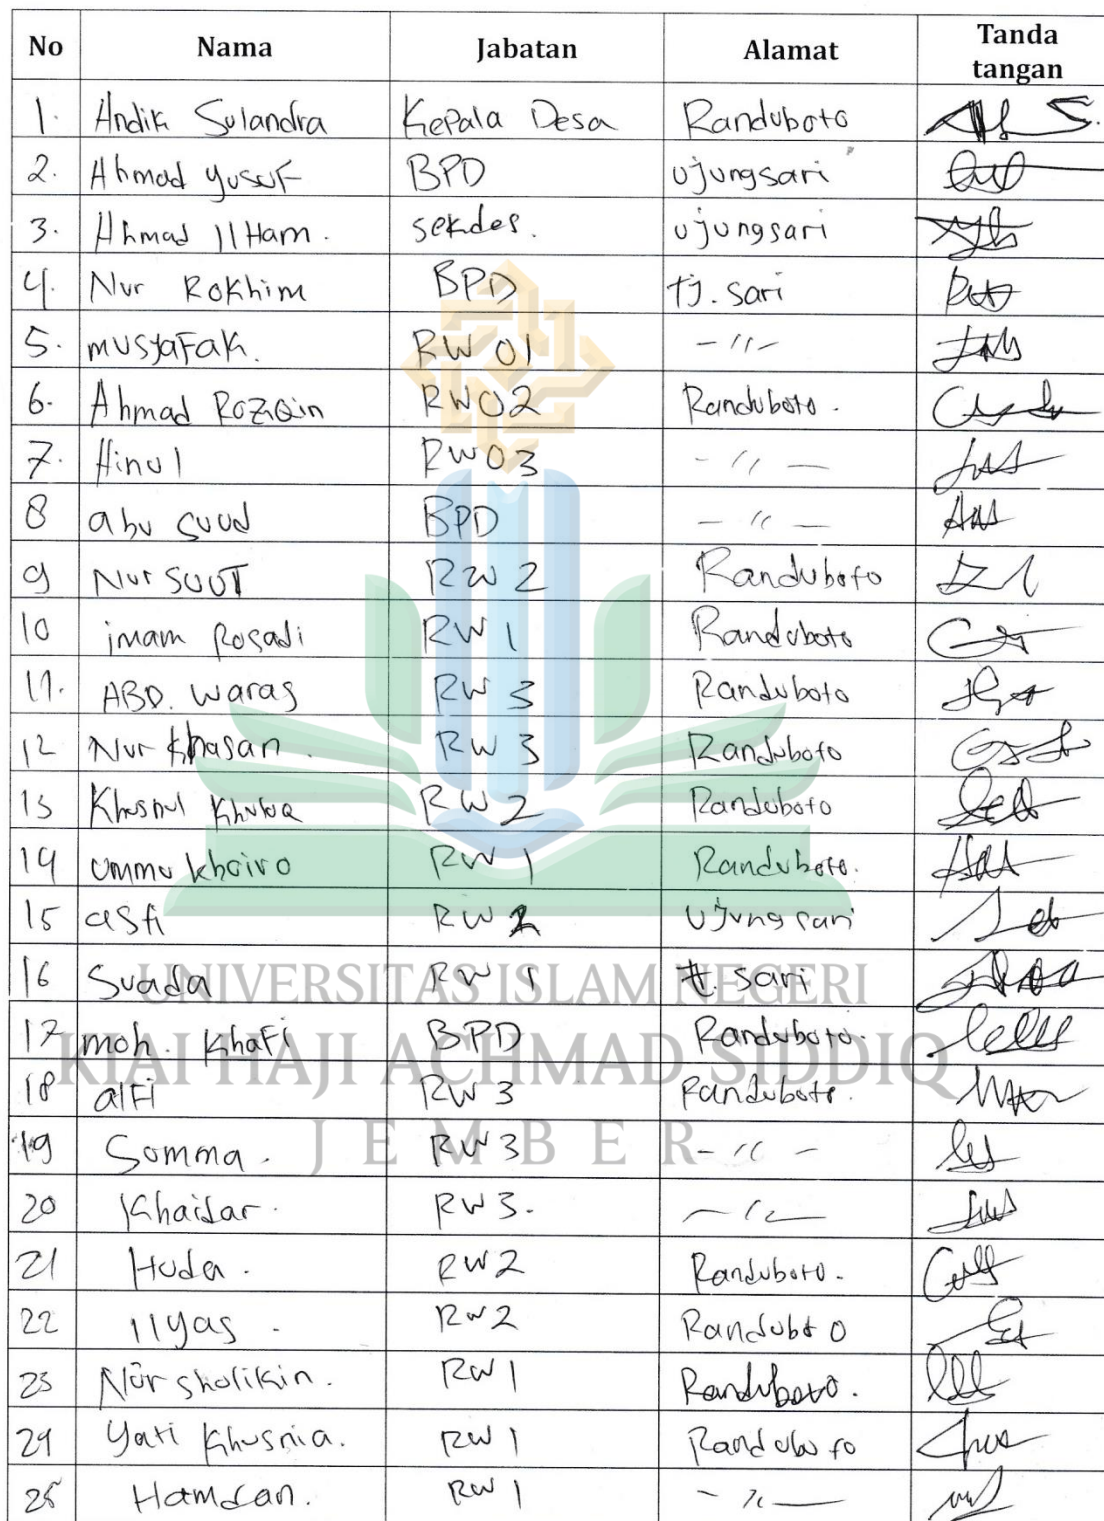 No Nama Jabatan Alamat Tanda tangan
1. Andik Sulandra Kepala Desa Randuboto
2. Ahmad yusuf BPD ujungsari
3. Ahmad Ilham. sekdes. ujungsari
4. Nur Rokhim BPD tj. sari
5. musyafak. RW 01 - 11 -
6. Ahmad Roziqin RW 02 Randuboto.
7. Hinul RW 03 - 11 -
8 abu suud BPD - 11 -
9 Nur RW 2 Randuboto
10 imam Rosadi RW 1 Randuboto
11. ABD. waras RW 3 Randuboto
12 Nur khasan. RW 3 Randuboto
13 Khusnul Khuluq RW 2 Randuboto
14 ummu khoiro RW 1 Randuboto.
15 asfi RW 2 ujung sari
16 Suada RW 1 t. sari
UNIVERSITAS ISLAM NEGERI
17 moh. Khafi BPD Randuboto.
KIAI HAJI ACHMAD SIDDIQ
18 alfi RW 3 Randuboto.
19 Somma. RW 3 - 11 -
JEMBER
20 Khaidar. RW 3. - 11 -
21 Huda. RW 2 Randuboto.
22 Ilyas. RW 2 Randuboto
23 Nur sholikin. RW 1 Randuboto.
24 Yati Khusnia. RW 1 Randuboto
25 Hamdan. RW 1 - 11 -